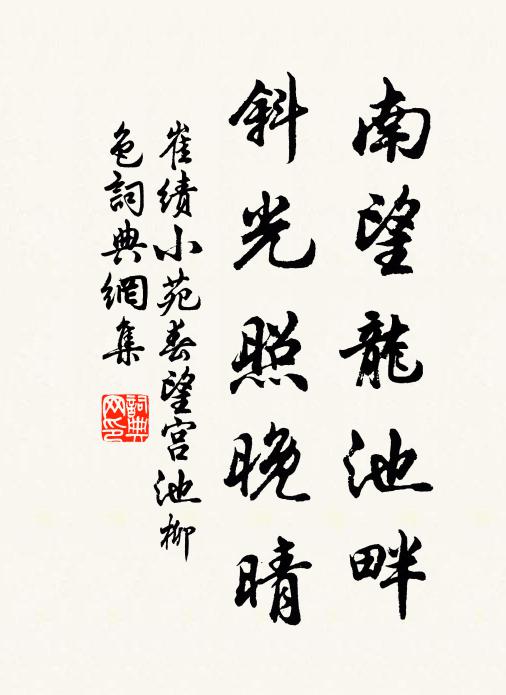 南望龍池畔
斜光照晚晴
崔績小苑春望宮池柳
色詞典網集
詞典
网印